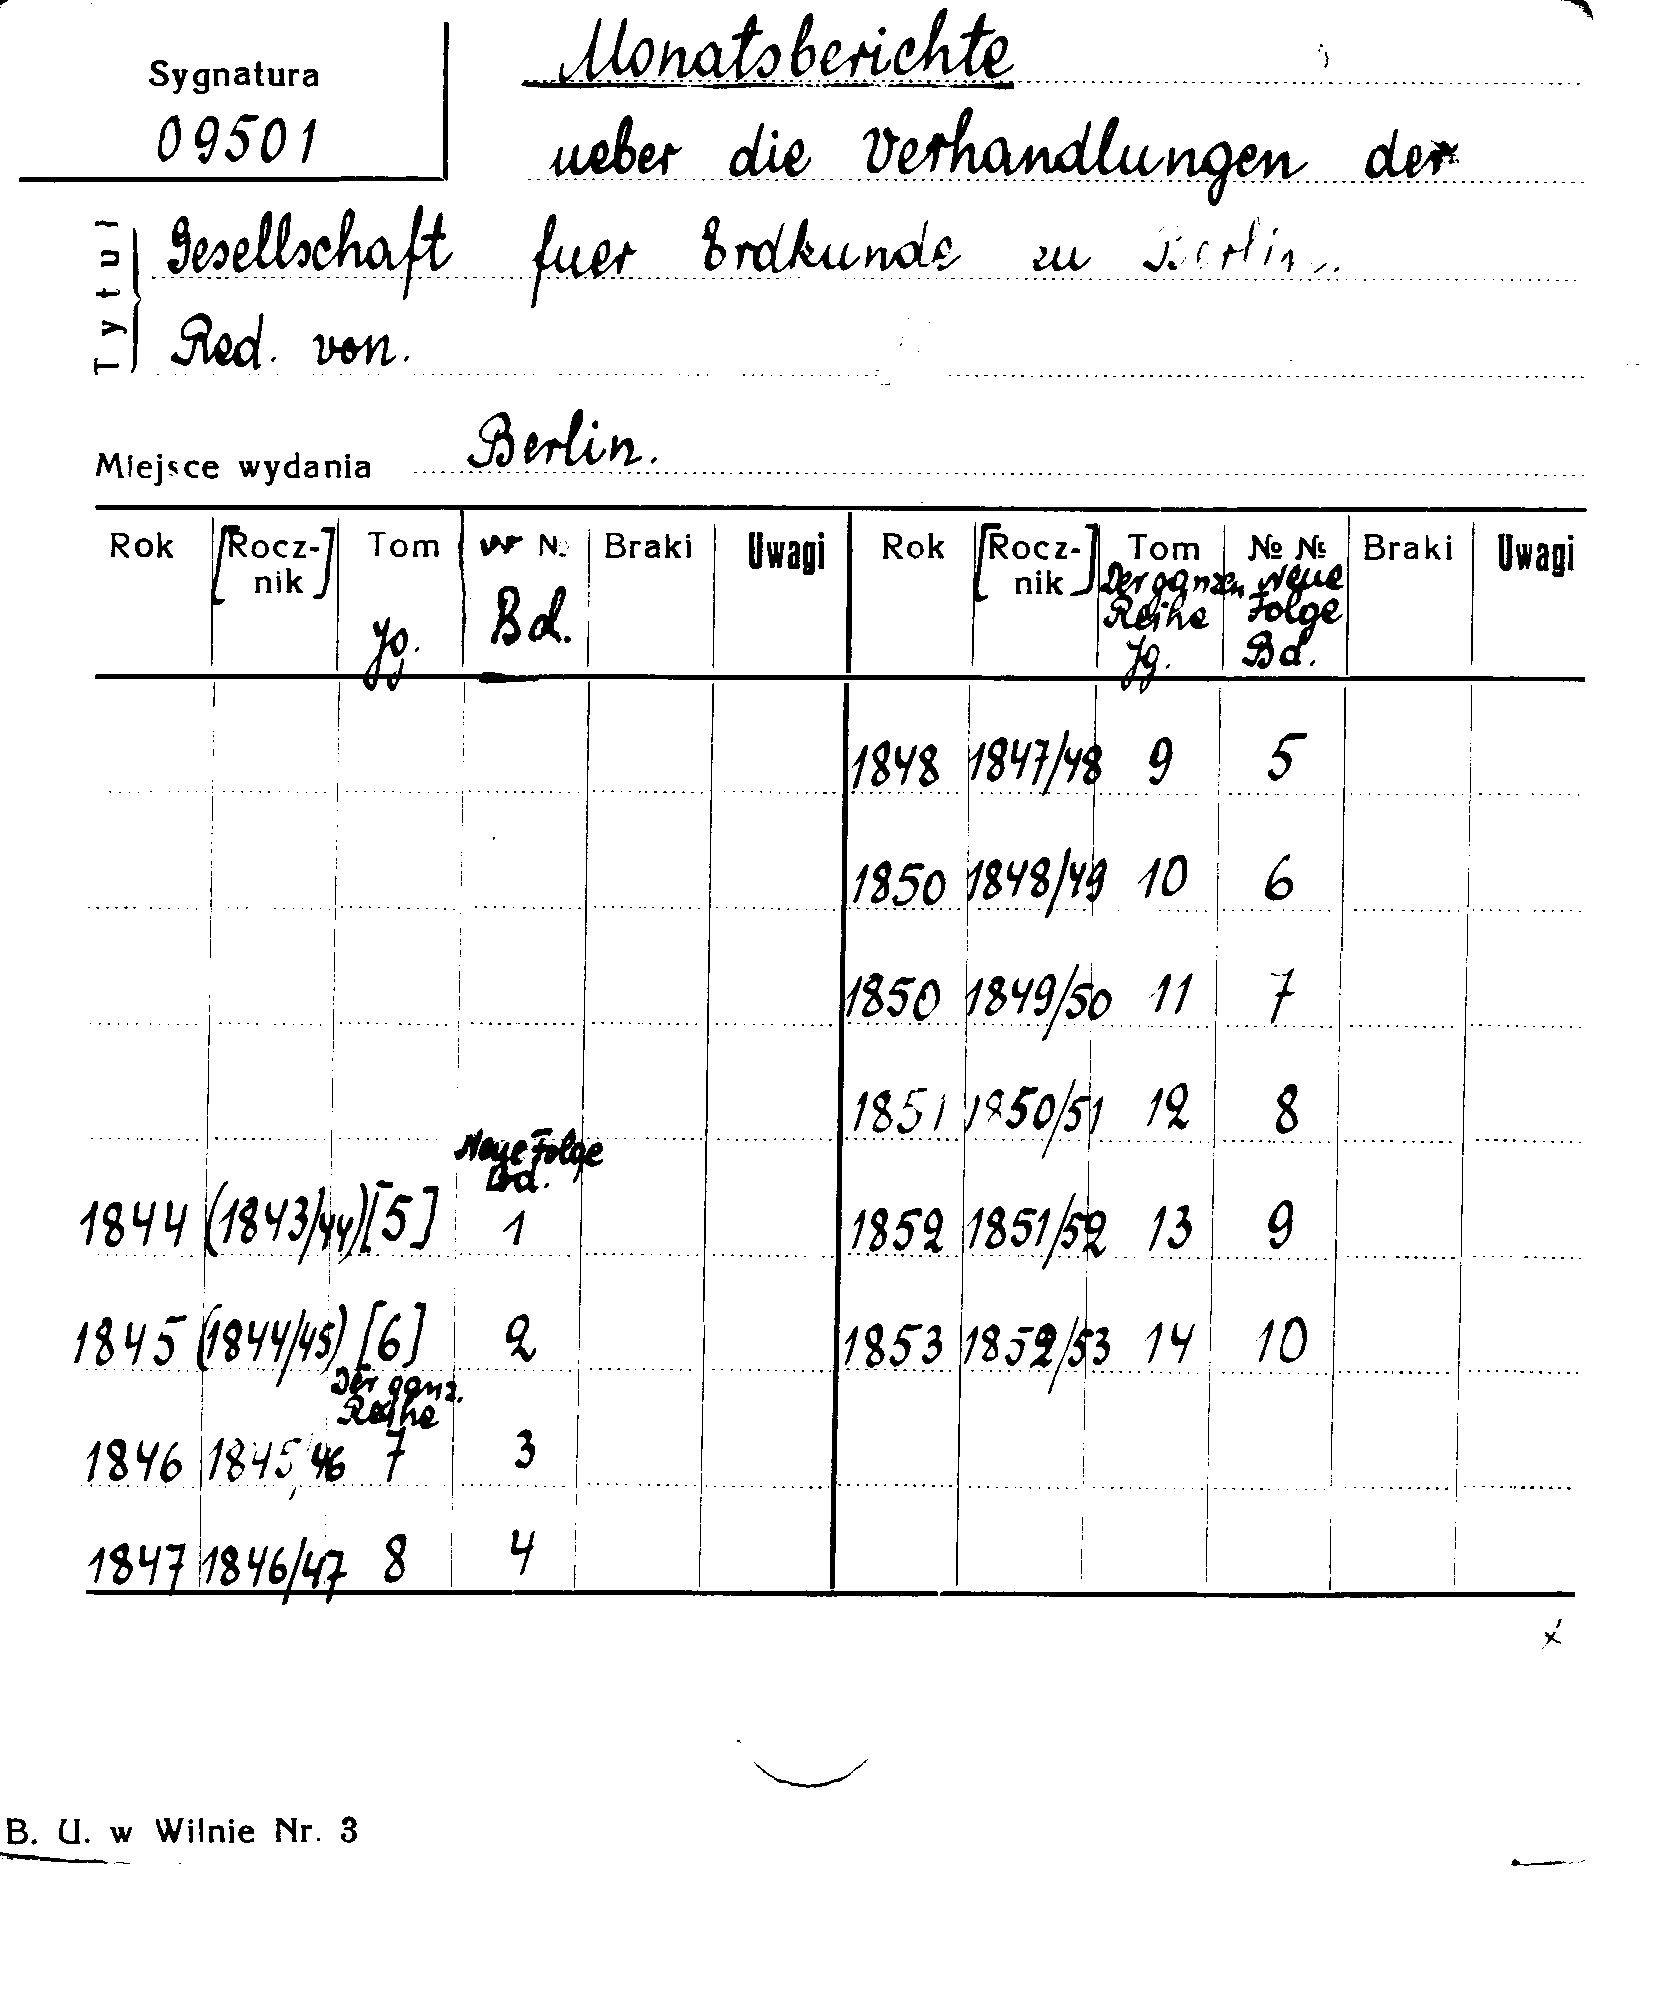 Sygnatura
09501
Monatsberichte
ueber die Verhandlungen der
Tytul
Gesellschaft fuer Erdkunde zu Berlin.
Red. von.
Miejsce wydania Berlin.
Rok [Rocz-nik] Tom Jg. № № Bd. Braki Uwagi
Rok [Rocz-nik] Tom Der ganzen Reihe Jg. № № Neue Folge Bd. Braki Uwagi
1848 1847/48 9 5
1850 1848/49 10 6
1850 1849/50 11 7
1851 1850/51 12 8
Neue Folge
Bd.
1844 (1843/44) [5] 1 1852 1851/52 13 9
1845 (1844/45) [6] 2 1853 1852/53 14 10
Der ganz.
Reihe
1846 1845/46 7 3
1847 1846/47 8 4
x
B. U. w Wilnie Nr. 3